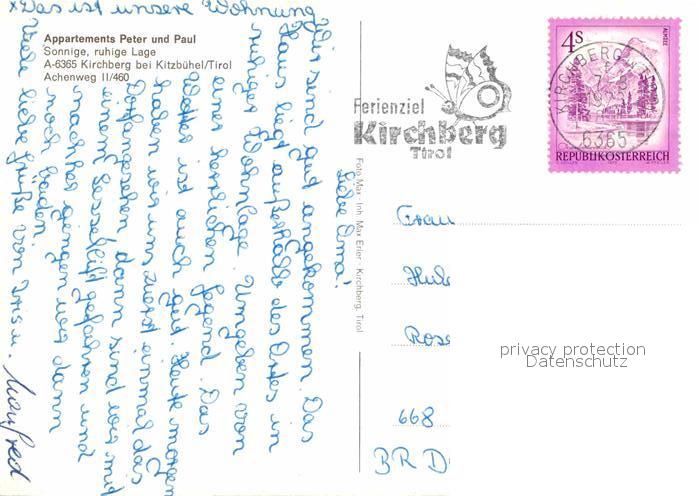 x Das ist unsere Wohnung
Appartements Peter und Paul
Sonnige, ruhige Lage
A-6365 Kirchberg bei Kitzbühel/Tirol
Achenweg II/460
Liebe Oma!
Wir sind gut angekommen. Das
Haus liegt außerhalb des Ortes in
ruhiger Wohnlage. Umgeben von
einer herrlichen Gegend. Das
Wetter ist auch gut. Heute morgen
haben wir uns zuerst einmal das
Dorf angesehen dann sind wir mit
einem Sessellift gefahren und
nachher gingen wir dann
noch baden.
Viele liebe Grüße von Ursu.
Manfred
Foto Max · Inh. Max Erler · Kirchberg, Tirol
Ferienziel
Kirchberg
Tirol
4S
ALMSEE
KIRCHBERG IN T
6365
REPUBLIK ÖSTERREICH
Frau
Hub
Rose
privacy protection
Datenschutz
668
BRD